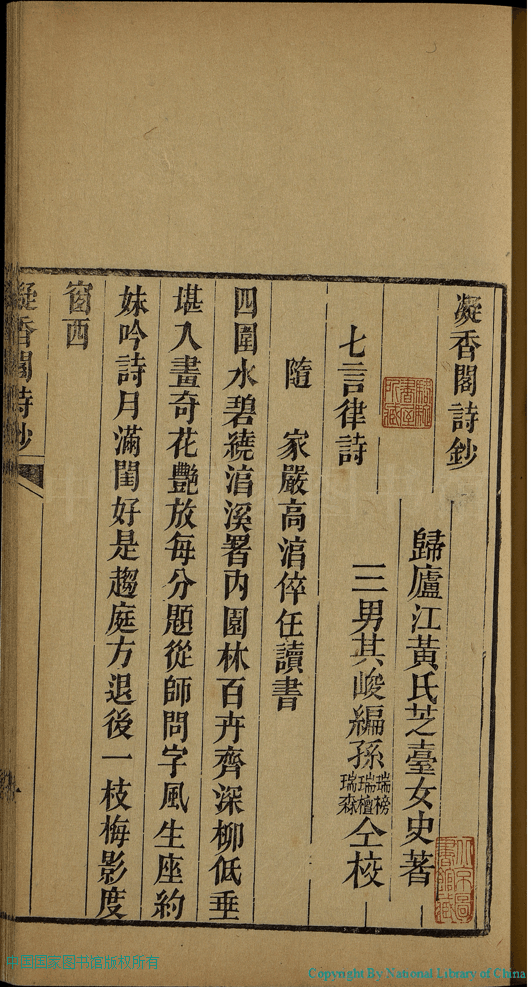 凝香閣詩鈔
歸廬江黃氏芝臺女史著
三男其峻編孫瑞榜瑞檀瑞森仝校
七言律詩
隨 家嚴高淯倅任讀書
四圍水碧繞淯溪署內園林百卉齊深柳低垂
堪入畫奇花艷放每分題從師問字風生座約
妹吟詩月滿閨好是趨庭方退後一枝梅影度
窗西
凝香閣詩鈔
中国国家图书馆版权所有
Copyright By National Library of China